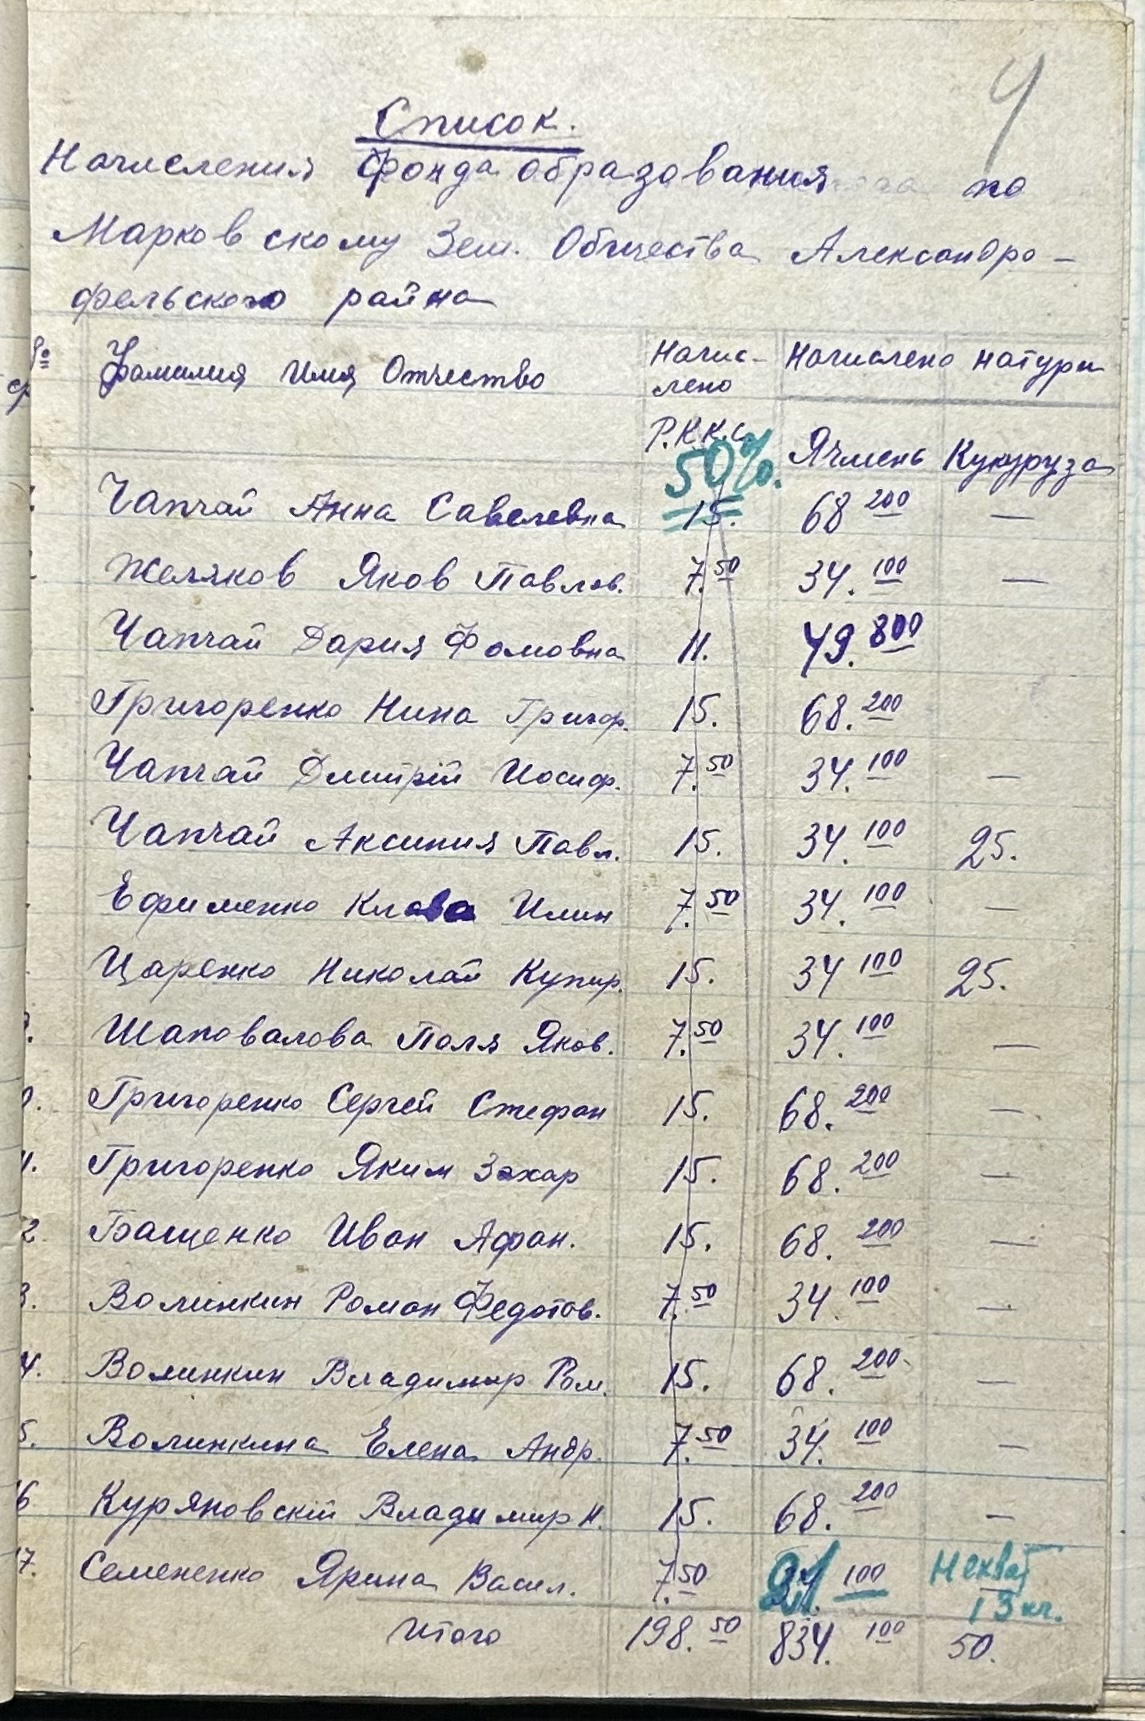 4
Список.
Начисления Фонда образования по
Марковскому Зем. Общества Александро-
фельского района
№ Фамилия Имя Отчество Начис- Начислено натури
ср лено
Р.К.К.С. Ячмень Кукуруза
50%.
Чапчай Анна Савелевна 15. 68 200 —
Желяков Яков Павлов. 7.50 34.100 —
Чапчай Дария Фомовна 11. 49.800
Григоренко Нина Григор. 15. 68.200
Чапчай Дмитрій Иосиф. 7.50 34.100 —
Чапчай Аксиния Павл. 15. 34.100 25.
Ефименко Клава Илин 7.50 34.100 —
Царенко Николай Купир. 15. 34 100 25.
9. Шаповалова Поля Яков. 7.50 34.100 —
0. Григоренко Сергей Стефан 15. 68.200 —
1. Григоренко Яким Захар 15. 68.200 —
2. Бащенко Иван Афан. 15. 68.200 —
3. Волинкин Роман Федотов. 7.50 34.100 —
4. Волинкин Владимир Ром. 15. 68.200 —
5. Волинкина Елена Андр. 7.50 34.100 —
16 Куряновскій Владимир Н. 15. 68.200 —
17. Семененко Ярина Васил. 7.50 21.100 Нехват
13 кг.
Итого 198.50 834.100 50.